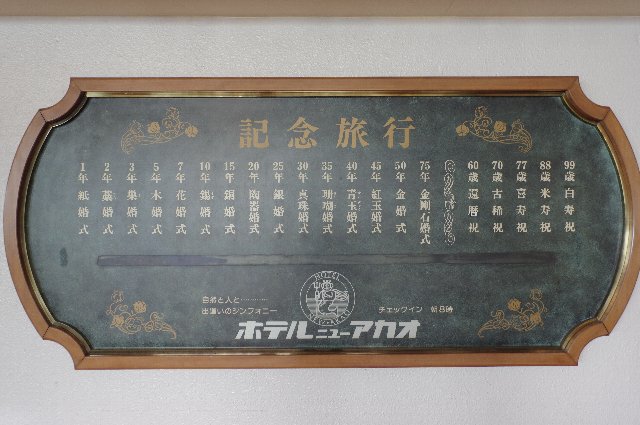 記念旅行
1年 紙婚式
2年 藁婚式
3年 巣婚式
5年 木婚式
7年 花婚式
10年 錫婚式
15年 銅婚式
20年 陶器婚式
25年 銀婚式
30年 真珠婚式
35年 珊瑚婚式
40年 青玉婚式
45年 紅玉婚式
50年 金婚式
75年 金剛石婚式
60歳 還暦祝
70歳 古稀祝
77歳 喜寿祝
88歳 米寿祝
99歳 白寿祝
HOTEL
自然と人と…………
出逢いのシンフォニー
チェックイン 朝8時
ホテルニューアカオ